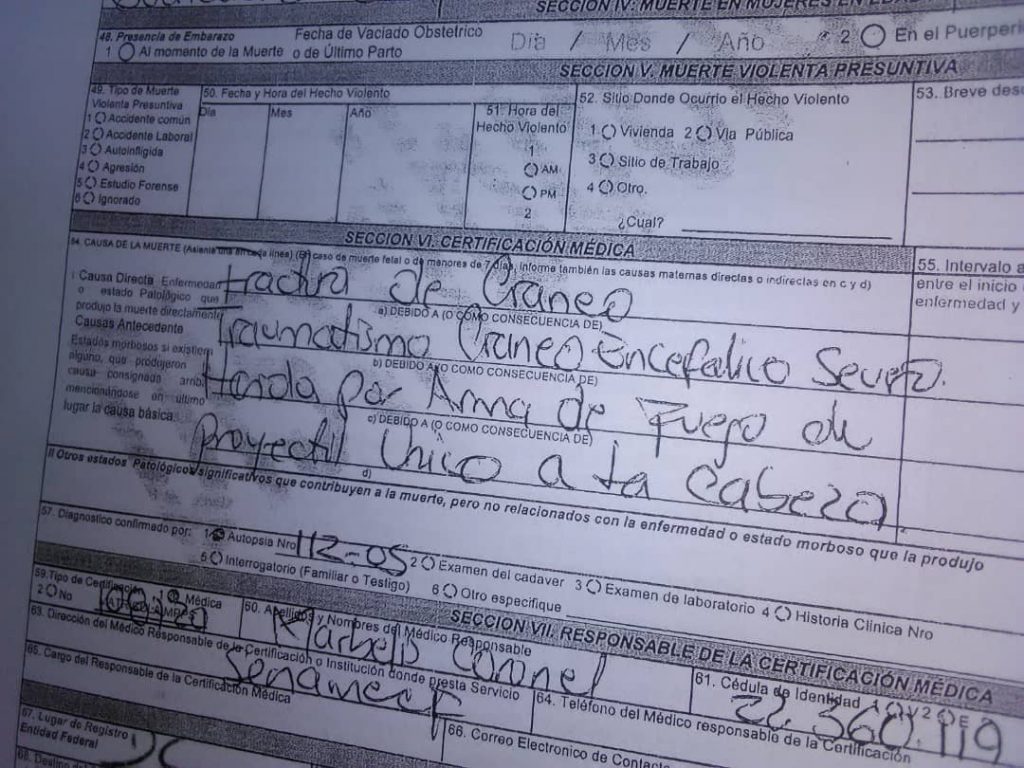 SECCION IV. MUERTE EN MUJERES EN EDAD
48. Presencia de Embarazo
1 Al momento de la Muerte
Fecha de Vaciado Obstetrico
o de Último Parto
Día / Mes / Año
2 En el Puerperi
SECCION V. MUERTE VIOLENTA PRESUNTIVA
49. Tipo de Muerte
Violenta Presuntiva
1 Accidente común
2 Accidente Laboral
3 Autoinfligida
4 Agresión
5 Estudio Forense
6 Ignorado
50. Fecha y Hora del Hecho Violento
Día
Mes
Año
51. Hora del
Hecho Violento
1
AM
PM
2
52. Sitio Donde Ocurrio el Hecho Violento
1 Vivienda 2 Via Pública
3 Sitio de Trabajo
4 Otro.
¿Cual?
53. Breve des
SECCION VI. CERTIFICACIÓN MÉDICA
54. CAUSA DE LA MUERTE (Asienta una en cada linea) (En caso de muerte fetal o de menores de 7 días, informe también las causas maternas directas o indirectas en c y d)
I Causa Directa Enfermedad
o estado Patológico que
produjo la muerte directamente
Causas Antecedente
Estados morbosos si existiera
alguno, que produjeron
causa consignada arriba
mencionándose en último
lugar la causa básica.
Fractura de Craneo
a) DEBIDO A (O COMO CONSECUENCIA DE)
Traumatismo Craneo Encefalico Severo.
b) DEBIDO A (O COMO CONSECUENCIA DE)
Herida por Arma de Fuego de
c) DEBIDO A (O COMO CONSECUENCIA DE)
Proyectil Unico a la Cabeza
d)
55. Intervalo a
entre el inicio
enfermedad y
II Otros estados Patológicos significativos que contribuyen a la muerte, pero no relacionados con la enfermedad o estado morboso que la produjo
57. Diagnostico confirmado por: 1 Autopsia Nro 112-05 2 Examen del cadaver 3 Examen de laboratorio 4 Historia Clinica Nro
5 Interrogatorio (Familiar o Testigo) 6 Otro especifique
SECCION VII. RESPONSABLE DE LA CERTIFICACIÓN MÉDICA
59. Tipo de Certificación
Médica
2 No
60. Apellidos y Nombres del Médico Responsable
Coronel
61. Cédula de Identidad 1 V 2 E
22.360.119
63. Dirección del Médico Responsable de la Certificación o Institución donde presta Servicio
Senamecf
64. Teléfono del Médico responsable de la Certificación
65. Cargo del Responsable de la Certificación Médica
66. Correo Electronico de Contacto
67. Lugar de Registro
Entidad Federal